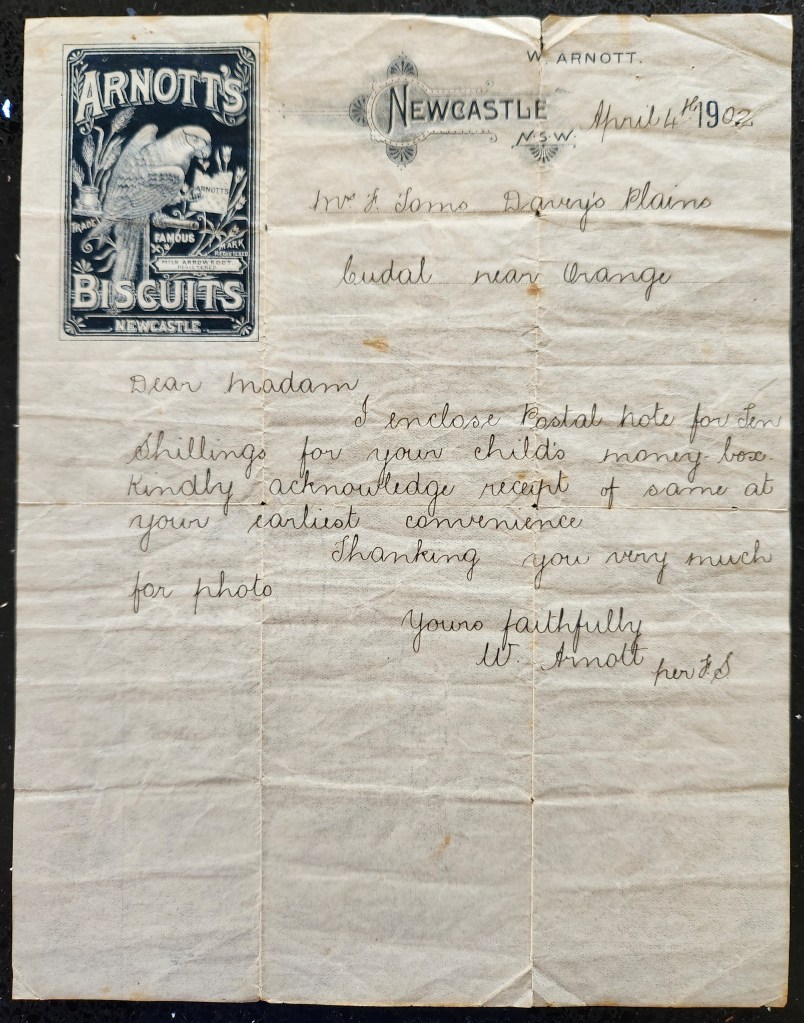 W. ARNOTT.
ARNOTT'S
NEWCASTLE
N.S.W.
April 4th 1902
ARNOTT'S
TRADE
FAMOUS
MARK
REGISTERED
MILK ARROWROOT
REGISTERED
BISCUITS
NEWCASTLE
Mrs F. Toms Davey's Plains
Cudal near Orange
Dear Madam
I enclose Postal Note for Ten
Shillings for your child's money-box.
Kindly acknowledge receipt of same at
your earliest convenience
Thanking you very much
for photo
Yours faithfully
W. Arnott per F.S